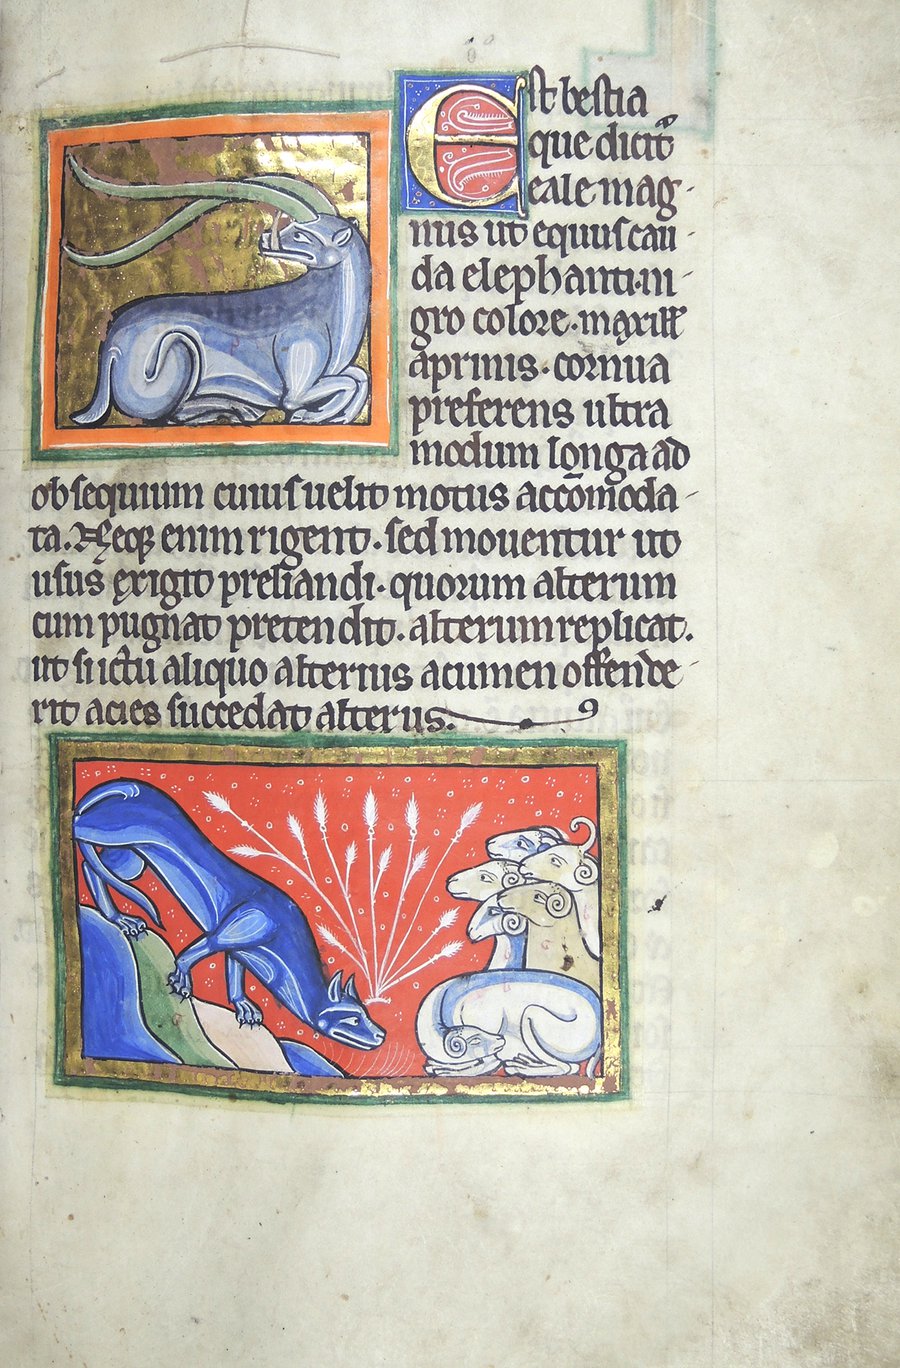 Est bestia
que dicit᷑
eale mag-
nus ut equus cau
da elephanti·ni-
gro colore·maxill᷑
aprinis·cornua
preferens ultra
modum longa ad
obsequium cuiusuelit motus accōmoda-
ta. Neqꝫ enim rigent·sed mouentur ut
usus exigit preliandi·quorum alterum
cum pugnat pretendit. alterum replicat.
ut si ictu aliquo alterius acumen offende-
rit acies succedat alterus.